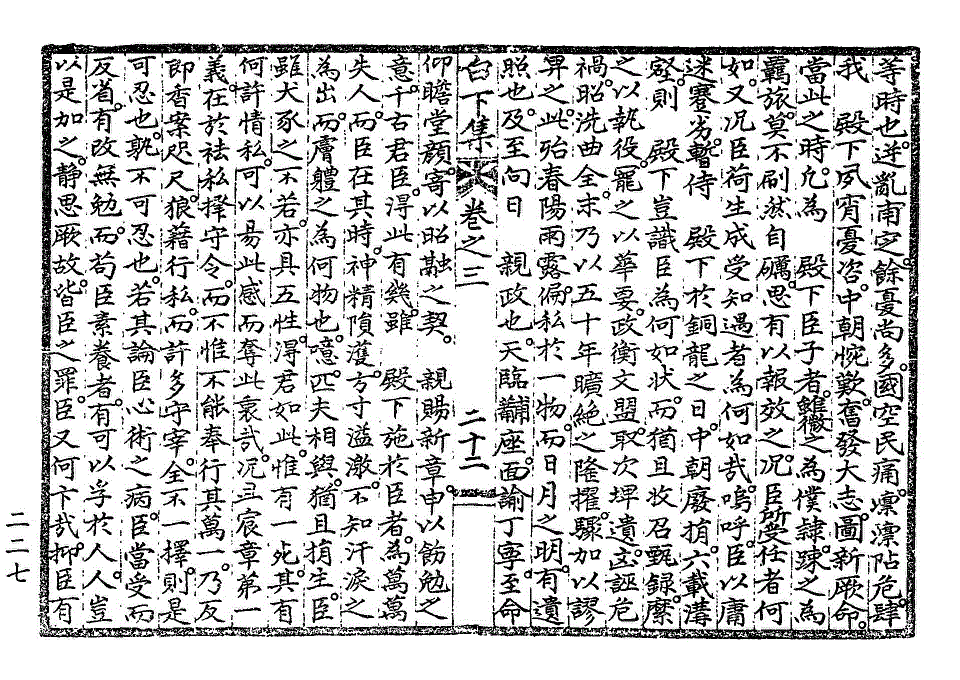 等時也。逆亂甫定。餘憂尚多。國空民痛。凛凛阽危。肆
我　殿下夙宵憂咨。中朝惋歎。奮發大志。圖新厥命。
當此之時。凡爲　殿下臣子者。雖微之爲僕隸。踈之爲
羇旅。莫不刷然自礪。思有以報效之。况臣所受任者何
如。又况臣荷生成受知遇者爲何如哉。嗚呼。臣以庸
迷蹇劣。暫侍　殿下於銅龍之日。中朝廢捐。六載溝
壑。則　殿下豈識臣爲何如状。而猶且收召甄錄。縻
之以執役。寵之以華要。政衡文盟。取次埤遺。凶誣危
禍。昭洗曲全。末乃以五十年曠絶之隆擢。驟加以謬
畀之。此殆春陽雨露。偏私於一物。而日月之明。有遺
照也。及至向日　親政也。天臨黼座。面諭丁寧。至命
白下集　卷之三　二十二
仰瞻堂顔。寄以昭融之契。　親賜新章。申以飭勉之
意。千古君臣。得此有幾。雖　殿下施於臣者。爲萬萬
失人。而臣在其時。神精隕濩。方寸溢激。不知汗淚之
爲出。而膚軆之爲何物也。噫。匹夫相與。猶且捐生。臣
雖犬豕之不若。亦具五性。得君如此。惟有一死。其有
何許情私。可以易此感而奪此衷哉。况丑宸章第一
義。在於袪私擇守令。而不惟不能奉行其萬一。乃反
即香案咫尺。狼藉行私。而許多守宰。全不一擇。則是
可忍也。孰不可忍也。若其論臣心術之病。臣當受而
反省。有改無勉。而苟臣素養者。有可以孚於人。人豈
以是加之。静思厥故。皆臣之罪。臣又何卞哉。抑臣有
二二七